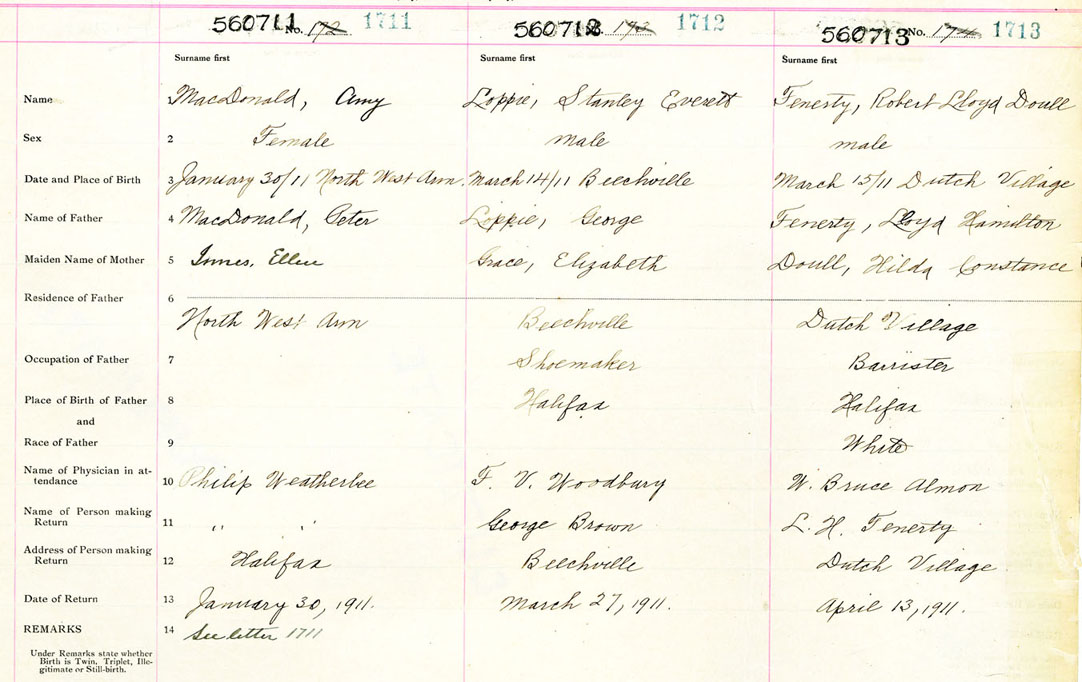 560711 No. 172 1711 560712 No. 173 1712 560713 No. 174 1713
Surname first Surname first Surname first
Name 1 MacDonald, Amy Loppie, Stanley Everett Fenerty, Robert Lloyd Doull
Sex 2 Female male male
Date and Place of Birth 3 January 30/11 North West Arm. March 14/11 Beechville March 15/11 Dutch Village
Name of Father 4 MacDonald, Peter Loppie, George Fenerty, Lloyd Hamilton
Maiden Name of Mother 5 Innes, Ellen Grace, Elizabeth Doull, Hilda Constance
Residence of Father 6
North West Arm Beechville Dutch Village
Occupation of Father 7 Shoemaker Barrister
Place of Birth of Father 8 Halifax Halifax
and
Race of Father 9 White
Name of Physician in at-
tendance 10 Philip Weatherbee F. V. Woodbury W. Bruce Almon
Name of Person making
Return 11 " " George Brown L. H. Fenerty
Address of Person making
Return 12 Halifax Beechville Dutch Village
Date of Return 13 January 30, 1911. March 27, 1911. April 13, 1911.
REMARKS 14 See letter 1711
Under Remarks state whether
Birth is Twin, Triplet, Ille-
gitimate or Still-birth.